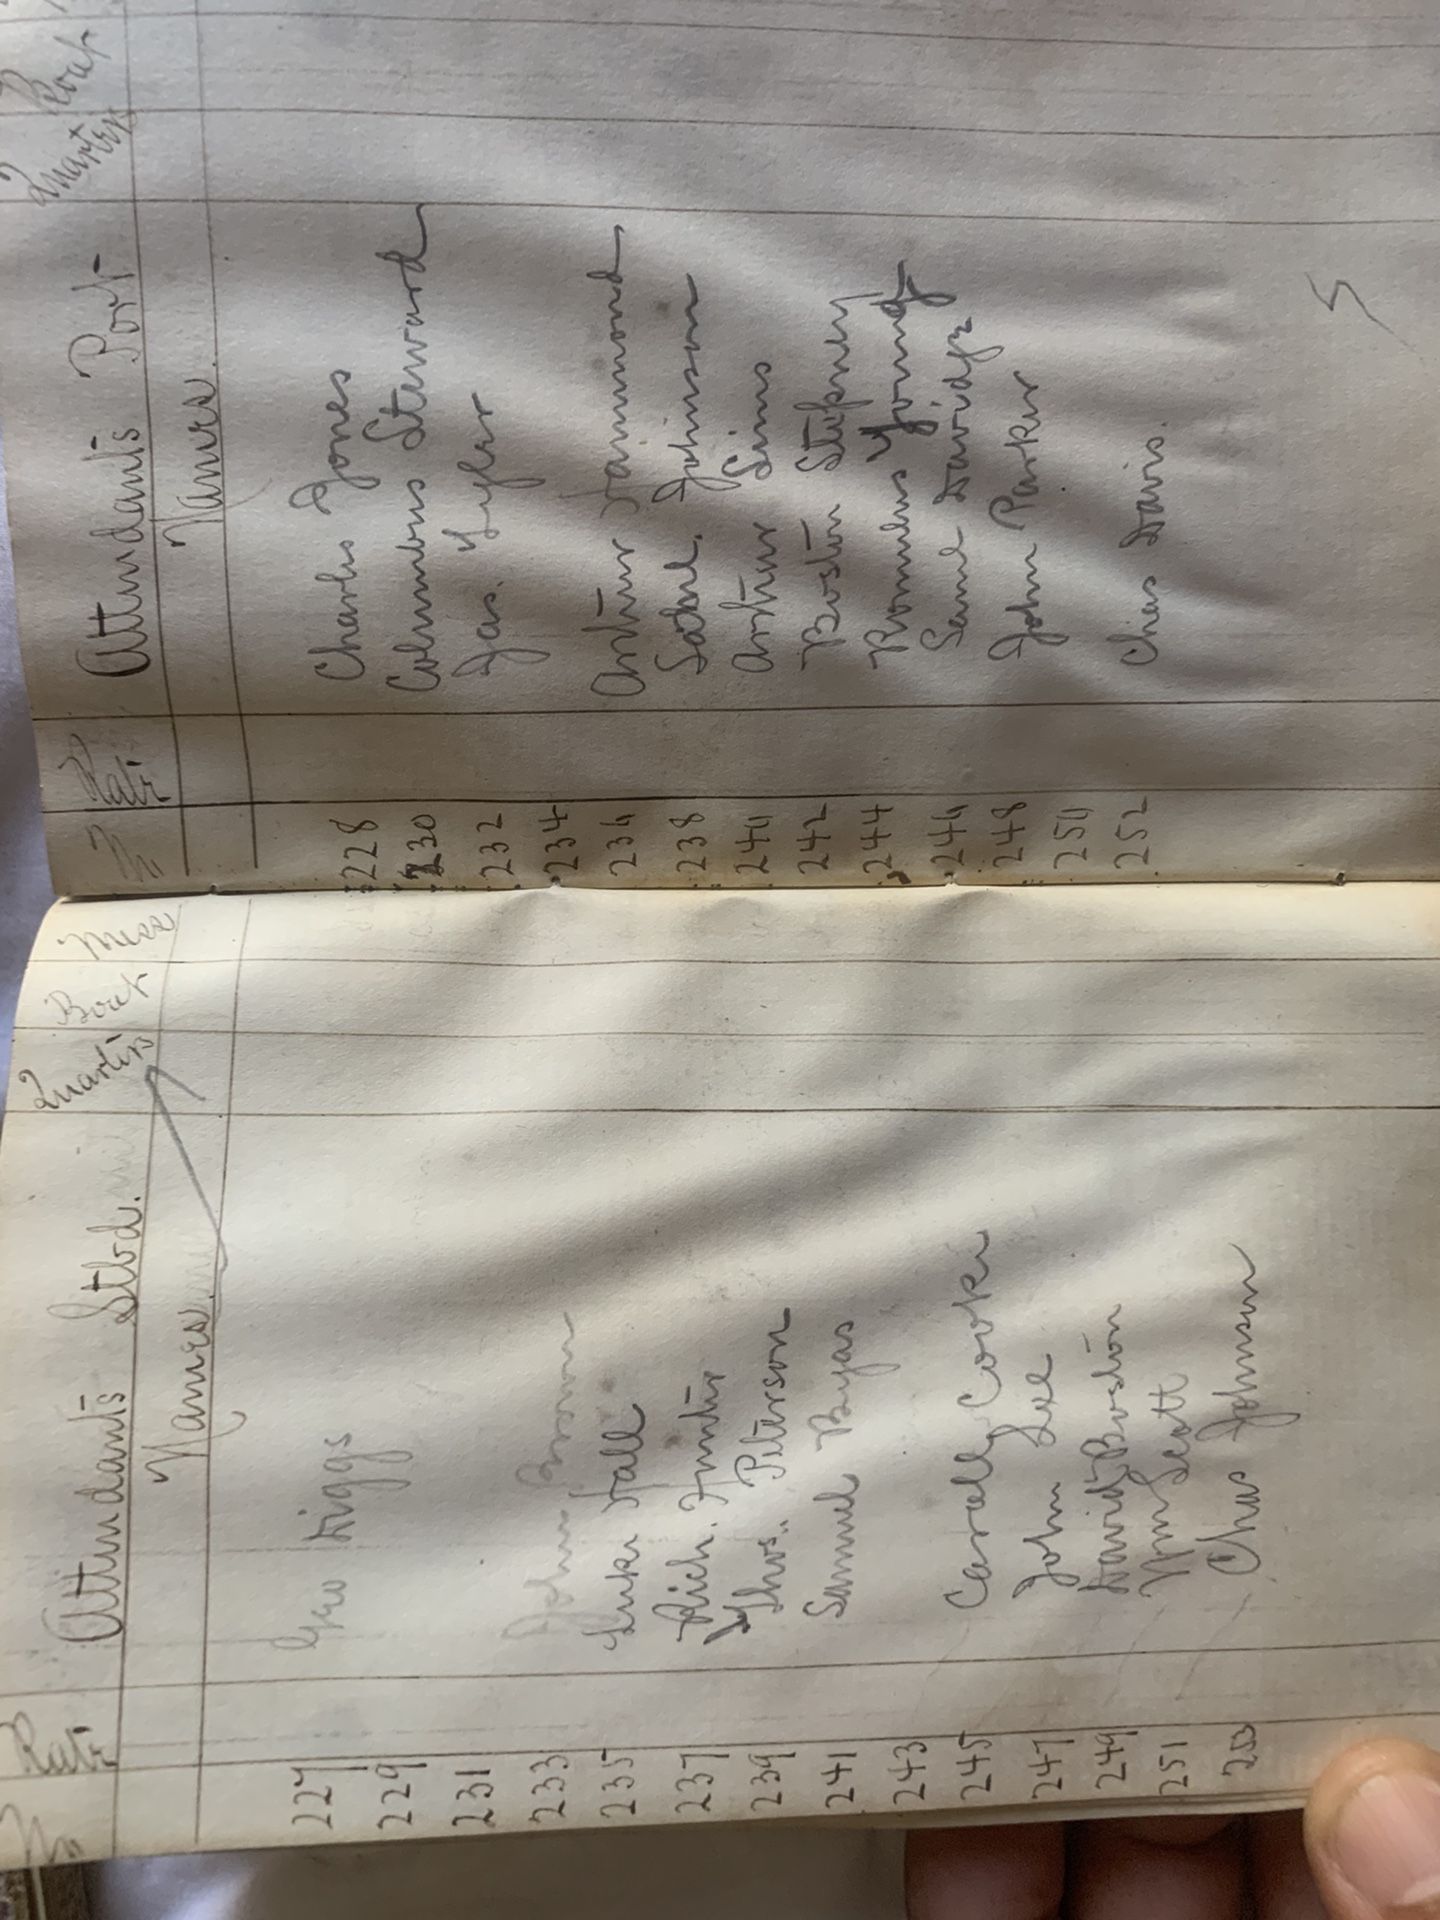 No Rate Attendants Stbd. Quarters Boat Mess
Names
227 Geo Diggs
229
231
233 John Brown
235 Luke Hall
237 Rich. Hunter
239 Thos. Peterson
241 Samuel Byas
243
245 Carall Cooke
247 John Lee
249 David Boston
251 Wm Scott
253 Chas Johnson
No Rate Attendants Port Quarters Boat
Names.
228 Charles Jones
230 Columbus Steward
232 Jas. Tyler
234
236 Arthur Hammond
238 Saml. Johnson
240 Arthur Sims
242 Boston Stepney
244 Romulus Young
246 Saml Davidge
248 John Parker
250
252 Chas Davis.
5